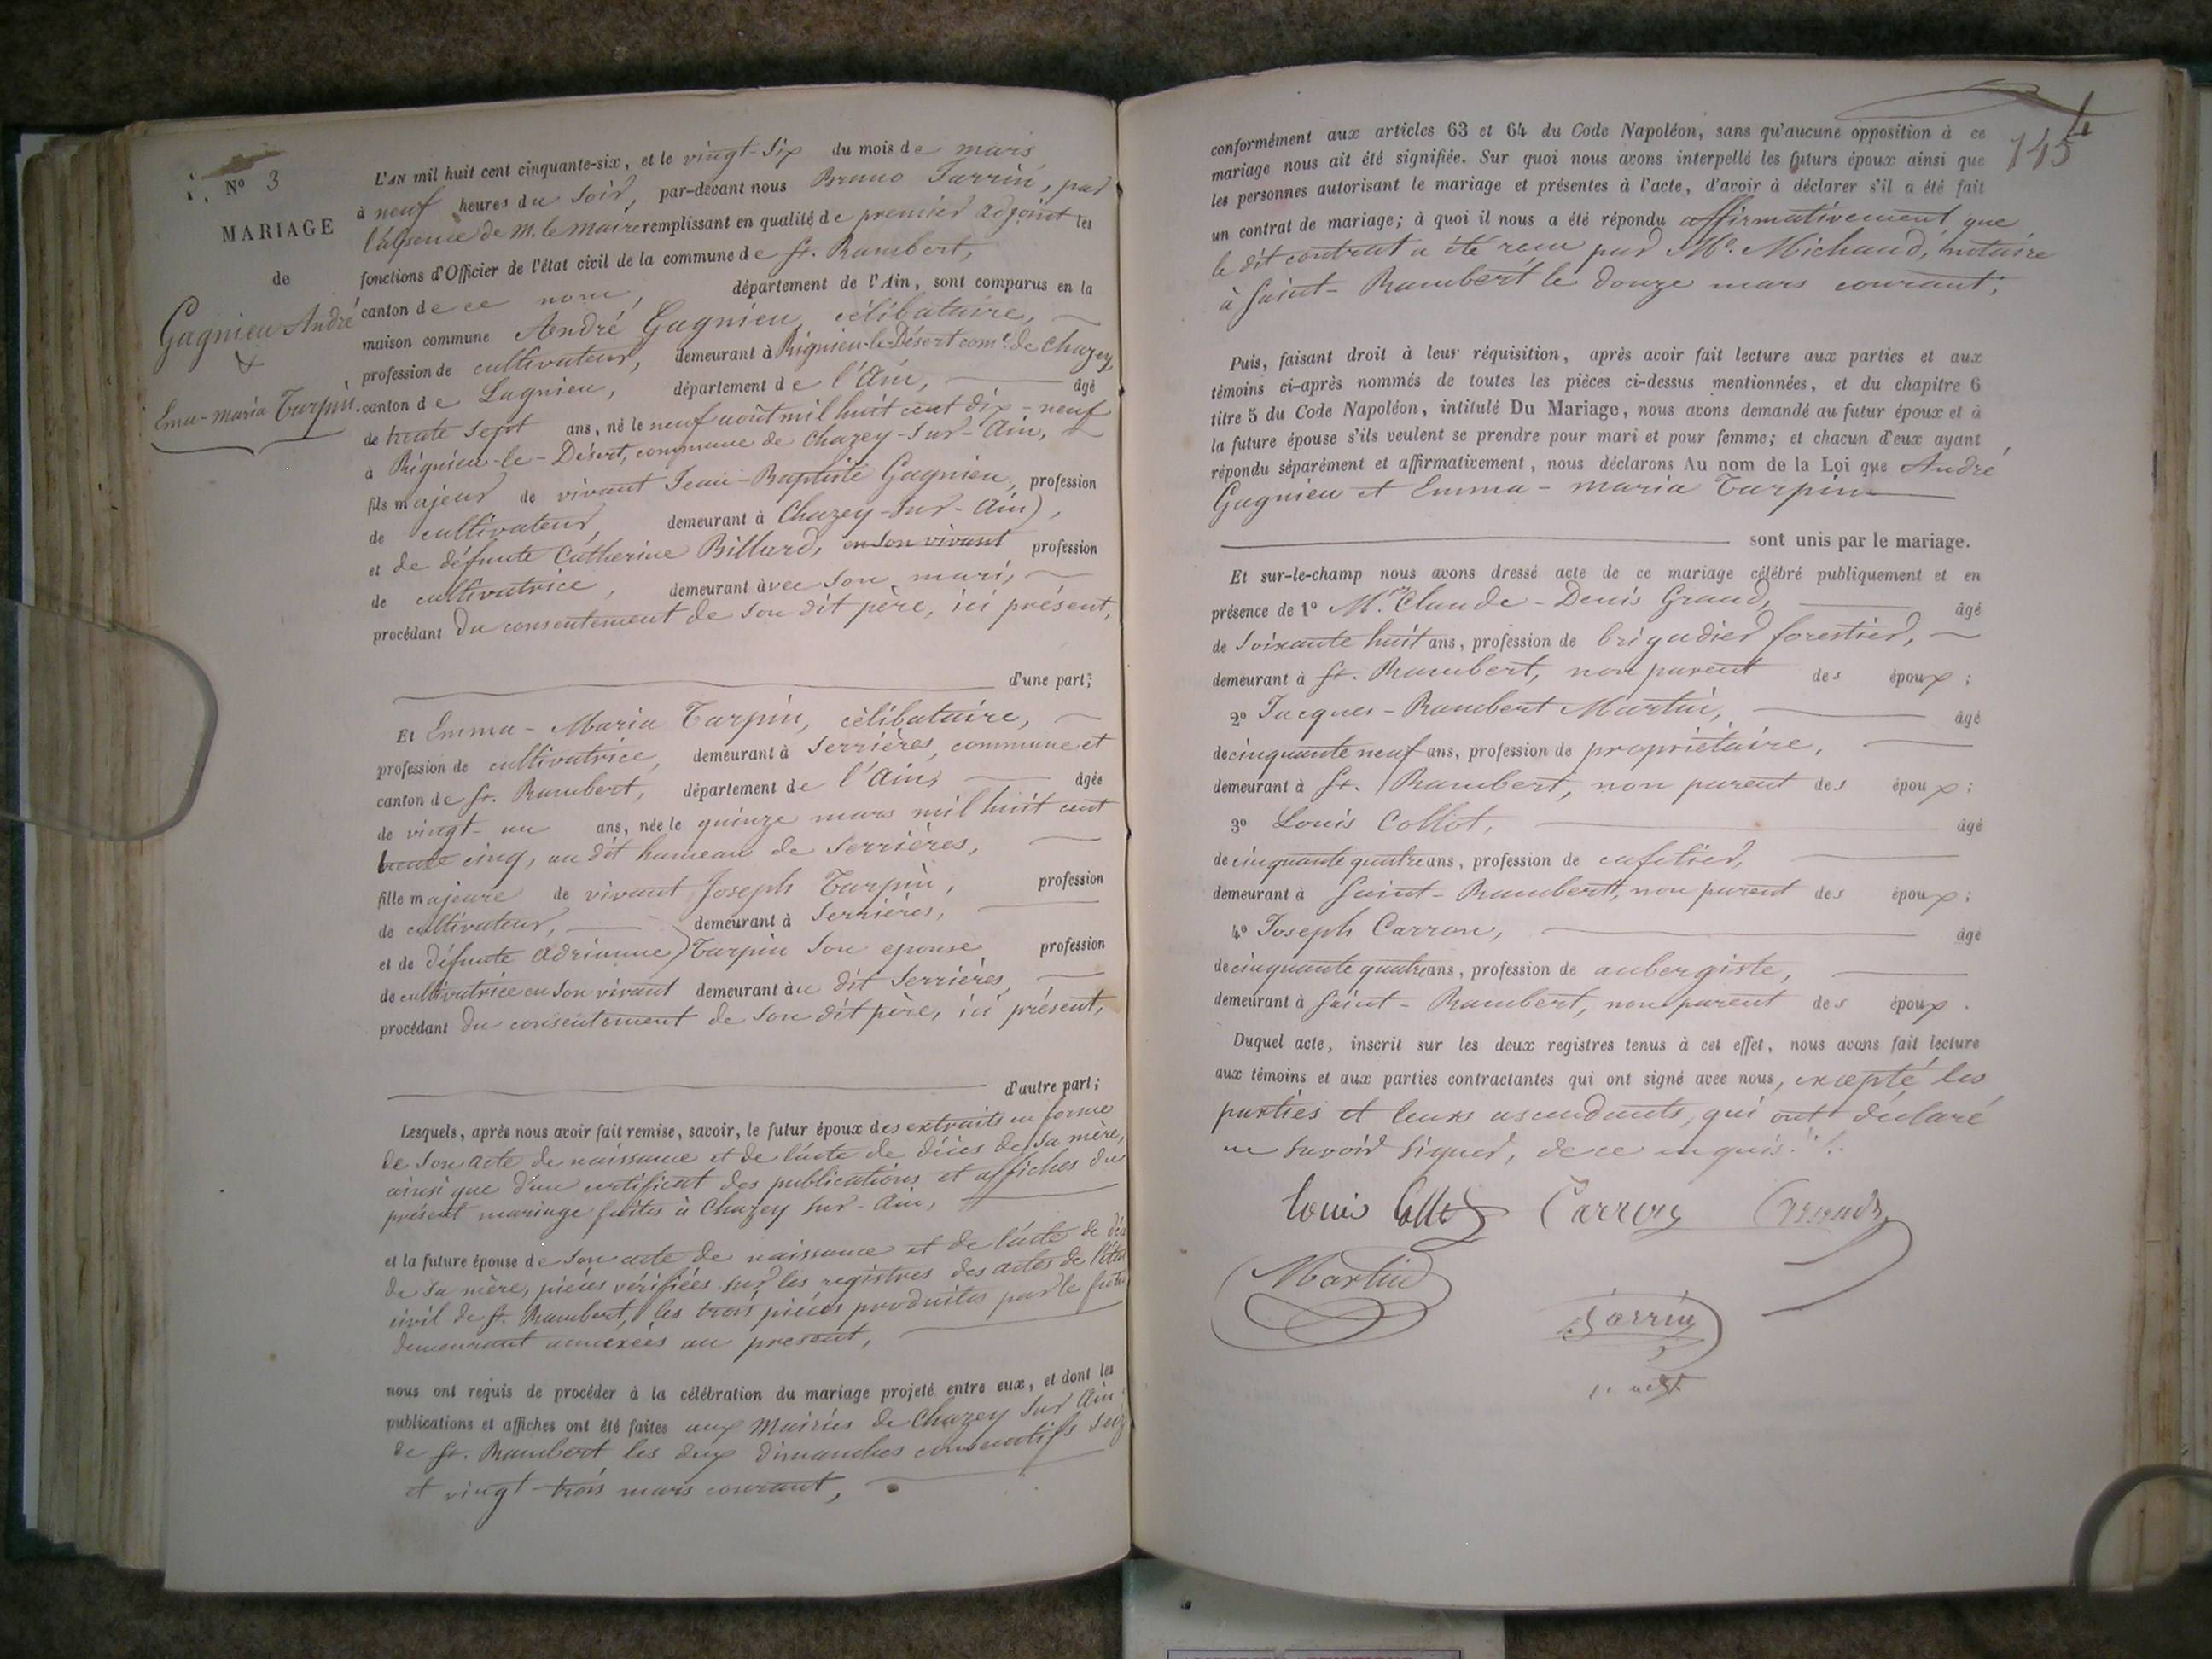 N° 3
MARIAGE
de
Gagnieu André
&
Ema-maria Tarpin.
L'AN mil huit cent cinquante-six, et le vingt-six du mois de mars
à neuf heures du soir, par-devant nous Bruno Sarrin, par
l'absence de M. le maire remplissant en qualité de premier adjoint les
fonctions d'Officier de l'état civil de la commune de St. Rambert,
canton de ce nom, département de l'Ain, sont comparus en la
maison commune André Gagnieu, célibataire,
profession de cultivateur, demeurant à Rignieu-le-Désert com.e de Chazey,
canton de Lagnieu, département de l'Ain, âgé
de trente sept ans, né le neuf août mil huit cent dix-neuf
à Rignieu-le-Désert, commune de Chazey-sur-Ain,
fils majeur de vivant Jean-Baptiste Gagnieu, profession
de cultivateur, demeurant à Chazey-sur-Ain,
et de défunte Catherine Billard, en son vivant profession
de cultivatrice, demeurant avec son mari,
procédant du consentement de son dit père, ici présent,
d'une part;
Et Emma-Maria Tarpin, célibataire,
profession de cultivatrice, demeurant à Serrières, commune et
canton de St. Rambert, département de l'Ain, âgée
de vingt-un ans, née le quinze mars mil huit cent
trente cinq, au dit hameau de Serrières,
fille majeure de vivant Joseph Tarpin, profession
de cultivateur, demeurant à Serrières,
et de défunte Adrianne Tarpin son epouse profession
de cultivatrice en son vivant demeurant au dit Serrières,
procédant du consentement de son dit père, ici présent,
d'autre part;
Lesquels, après nous avoir fait remise, savoir, le futur époux des extraits en forme
de son acte de naissance et de l'acte de décès de sa mère,
ainsi que d'un certificat des publications et affiches du
présent mariage faites à Chazey sur-Ain,
et la future épouse de son acte de naissance et de l'acte de
de sa mère, pièces vérifiées sur les registres des actes de l'état
civil de St. Rambert, les trois pièces produites par le futur
demeurant annexées au présent,
nous ont requis de procéder à la célébration du mariage projeté entre eux, et dont les
publications et affiches ont été faites aux Mairies de Chazey sur Ain
de St. Rambert les deux dimanches consecutifs seize
et vingt-trois mars courant,
145
conformément aux articles 63 et 64 du Code Napoléon, sans qu'aucune opposition à ce
mariage nous ait été signifiée. Sur quoi nous avons interpellé les futurs époux ainsi que
les personnes autorisant le mariage et présentes à l'acte, d'avoir à déclarer s'il a été fait
un contrat de mariage; à quoi il nous a été répondu affirmativement que
le dit contrat a été reçu par Me. Michaud, notaire
à Saint-Rambert le douze mars courant;
Puis, faisant droit à leur réquisition, après avoir fait lecture aux parties et aux
témoins ci-après nommés de toutes les pièces ci-dessus mentionnées, et du chapitre 6
titre 5 du Code Napoléon, intitulé Du Mariage, nous avons demandé au futur époux et à
la future épouse s'ils veulent se prendre pour mari et pour femme; et chacun d'eux ayant
répondu séparément et affirmativement, nous déclarons Au nom de la Loi que André
Gagnieu et Emma-maria Tarpin
sont unis par le mariage.
Et sur-le-champ nous avons dressé acte de ce mariage célébré publiquement et en
présence de 1° Mr. Claude-Denis Grand, âgé
de soixante huit ans, profession de brigadier forestier,
demeurant à St. Rambert, non parent des époux;
2° Jacques-Rambert Martin, âgé
de cinquante neuf ans, profession de propriétaire,
demeurant à St. Rambert, non parent des époux;
3° Louis Collot, âgé
de cinquante quatre ans, profession de cafetier,
demeurant à Saint-Rambert, non parent des époux;
4° Joseph Carron, âgé
de cinquante quatre ans, profession de aubergiste,
demeurant à Saint-Rambert, non parent des époux.
Duquel acte, inscrit sur les deux registres tenus à cet effet, nous avons fait lecture
aux témoins et aux parties contractantes qui ont signé avec nous, excepté les
parties et leurs ascendants, qui ont déclaré
ne savoir signer, de ce enquis.
Louis Collot Carron Grand
Martin
Sarrin